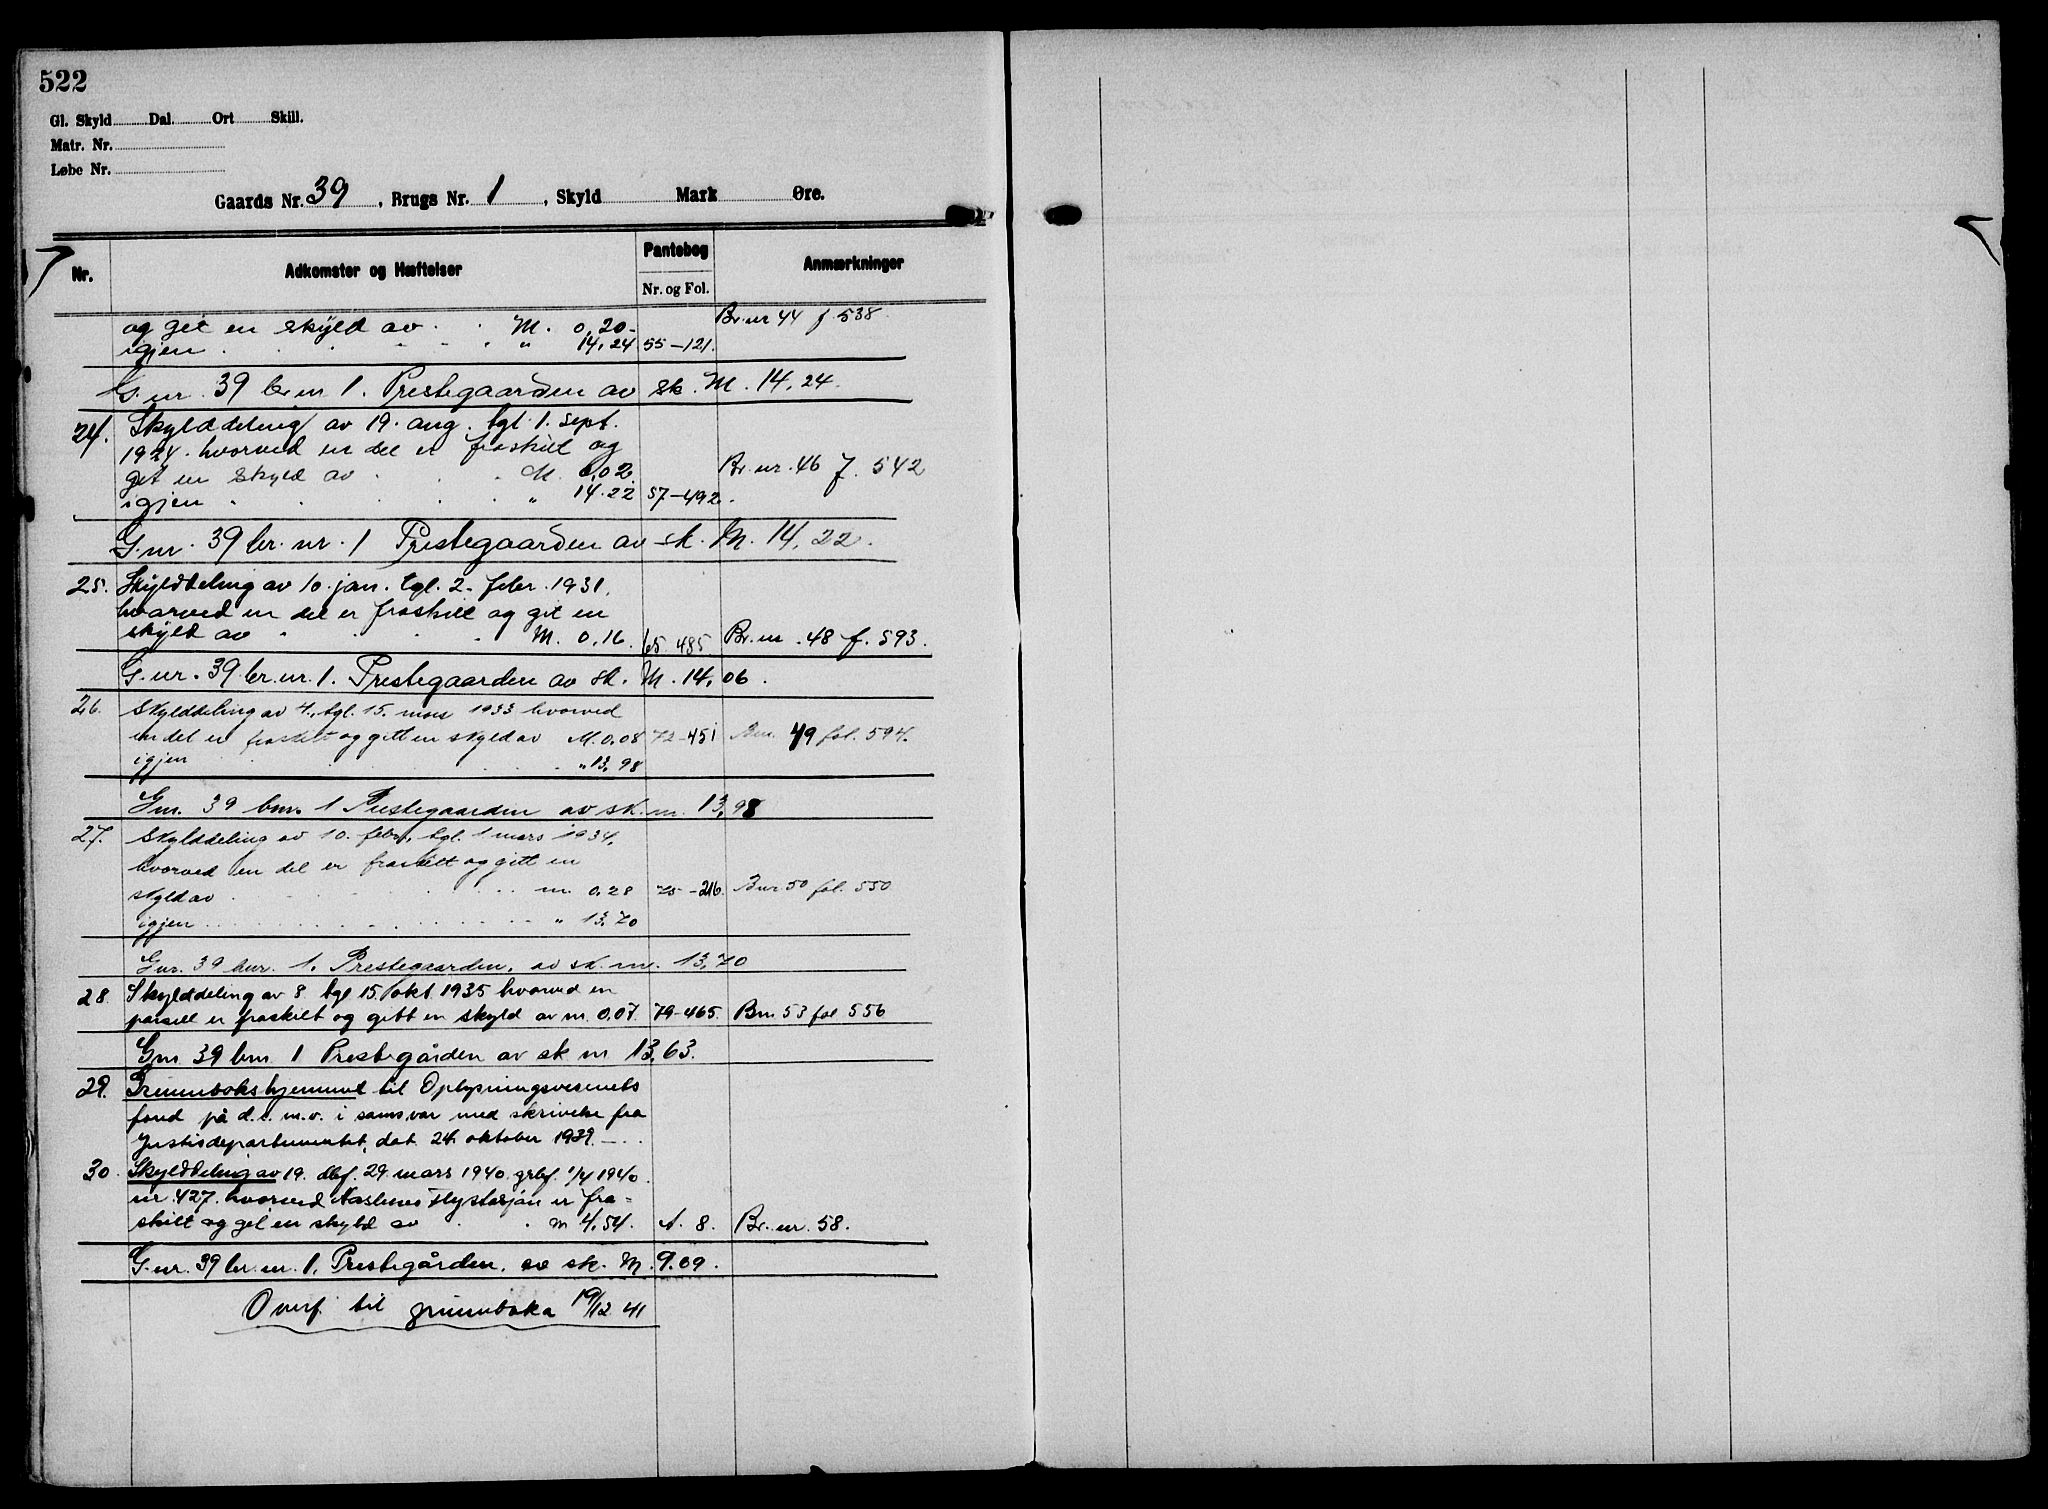 522
Gl. Skyld Dal. Ort Skill.
Matr. Nr.
Løbe Nr.
Gaards Nr. 39, Brugs Nr. 1, Skyld Mark Øre.
Nr. Adkomster og Hæftelser Pantebog Nr. og Fol. Anmærkninger
og git en skyld av . . M. 0,20- Br. nr 44 f 538.
igjen . . . . . " 14,24 55-121.
G. nr. 39 br nr 1. Prestegaarden av sk. M. 14,24.
24. Skylddeling av 19. aug. tgl. 1. sept.
1924. hvorved en del er fraskilt og
git en skyld av . . . M. 0,02. Br. nr. 46 f. 542
igjen . . . . . " 14.22 57-492.
G. nr. 39 br. nr. 1 Prestegaarden av sk. M. 14,22.
25. Skylddeling av 10. jan. tgl. 2. febr. 1931,
hvorved en del er fraskilt og git en
skyld av . . . . M. 0,16. 65 485. Br. nr. 48 f. 593.
G. nr. 39 br. nr. 1. Prestegaarden av sk. M. 14,06.
26. Skylddeling av 4., tgl. 15. mars 1933 hvorved
en del er fraskilt og gitt en skyld av M. 0,08 72-451 Bnr. 49 fol. 594.
igjen . . . . . " 13,98
Gnr. 39 bnr. 1 Prestegaarden av sk. m. 13,98
27. Skylddeling av 10. febr., tgl. 1 mars 1934,
hvorved en del er fraskilt og gitt en
skyld av . . . . . m. 0,28 75-216. Bnr 50 fol. 550
igjen . . . . . " 13,70
Gnr. 39 bnr. 1. Prestegaarden, av sk. m. 13,70
28. Skylddeling av 8 tgl 15. okt. 1935 hvorved en
parsell er fraskilt og gitt en skyld av m. 0,07. 79-465. Bnr 53 fol 556
Gnr 39 bnr 1 Prestegården av sk m 13,63.
29. Grunnbokshjemmel til Oplysningsvesenets
fond på d. e. m.v. i samsvar med skrivelse fra
Justisdepartementet, dat. 24. oktober 1939.
30. Skylddeling av 19. dbf. 29. mars 1940. grbf. 1/4 1940.
nr. 427. hvorved er fra=
skilt og git en skyld av . . m 4,54. A. 8. Br. nr. 58.
G. nr. 39 br. nr. 1. Prestegården, av sk. M. 9.09.
Overf. til grunnboka 19/12 41